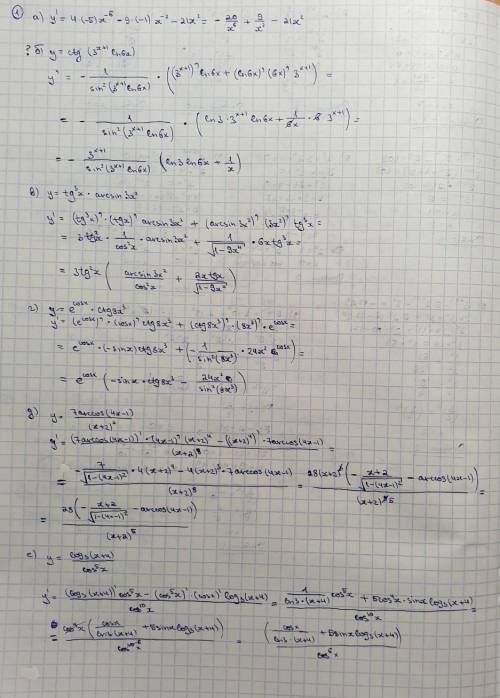 ① а) y' = 4·(-5)x⁻⁶ - 9·(-1)x⁻² - 21x² = - 20/x⁶ + 9/x² - 21x²
? б) y = ctg (3ˣ⁺¹ ln6x)
y' = - 1/sin²(3ˣ⁺¹ ln6x) · ((3ˣ⁺¹)' ln6x + (ln6x)' (6x)' 3ˣ⁺¹) =
= - 1/sin²(3ˣ⁺¹ ln6x) · (ln3·3ˣ⁺¹ ln6x + 1/6x · 6·3ˣ⁺¹) =
= - 3ˣ⁺¹/sin²(3ˣ⁺¹ ln6x) (ln3 ln6x + 1/x)
в) y = tg³x · arcsin3x²
y' = (tg³x)' · (tgx)' arcsin3x² + (arcsin3x²)' (3x²)' tg³x =
= 3tg²x · 1/cos²x · arcsin3x² + 1/√(1-9x⁴) · 6x tg³x =
= 3tg²x (arcsin3x²/cos²x + 2x tgx/√(1-9x⁴))
г) y = e^cosx · ctg8x³
y' = (e^cosx)' · (cosx)' ctg8x³ + (ctg8x³)' · (8x³)' · e^cosx =
= e^cosx · (-sinx) ctg8x³ + (- 1/sin²(8x³) · 24x² e^cosx) =
= e^cosx (-sinx · ctg8x³ - 24x²/sin²(8x³))
д) y = 7arccos(4x-1)/(x+2)⁴
y' = ((7arccos(4x-1))' · (4x-1)' (x+2)⁴ - ((x+2)⁴)' · 7arccos(4x-1))/(x+2)⁸ =
= (- 7/√(1-(4x-1)²) · 4(x+2)⁴ - 4(x+2)³ · 7arccos(4x-1))/(x+2)⁸ = 28(x+2)³ (- (x+2)/√(1-(4x-1)²) - arccos(4x-1))/(x+2)⁵ =
= 28 (- (x+2)/√(1-(4x-1)²) - arccos(4x-1))/(x+2)⁵
е) y = log₃(x+4)/cos⁵x
y' = ((log₃(x+4))' cos⁵x - (cos⁵x)' · (cosx)' log₃(x+4))/cos¹⁰x = (1/(ln3·(x+4)) cos⁵x + 5cos⁴x · sinx log₃(x+4))/cos¹⁰x =
= cos⁴x (cosx/(ln3(x+4)) + 5sinx log₃(x+4))/cos¹⁰x = (cosx/(ln3·(x+4)) + 5sinx log₃(x+4))/cos⁶x